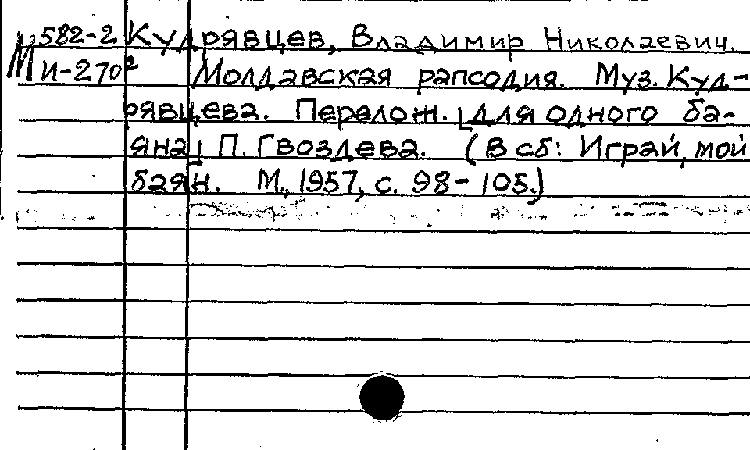 М 582-2 Кудрявцев, Владимир Николаевич.
И-270² Молдавская рапсодия. Муз. Куд-
рявцева. Перелож. [для одного ба-
яна] П. Гвоздева. (В сб: Играй, мой
баян. М., 1957, с. 98-105.)